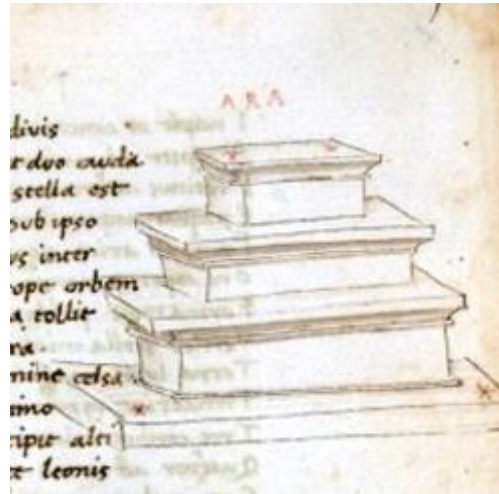 ARA
divis
t duo cauda
stella est
sub ipso
us inter
ope orbem
a tollit
ra.
mine celsa.
imo
cipit alti
t leonis